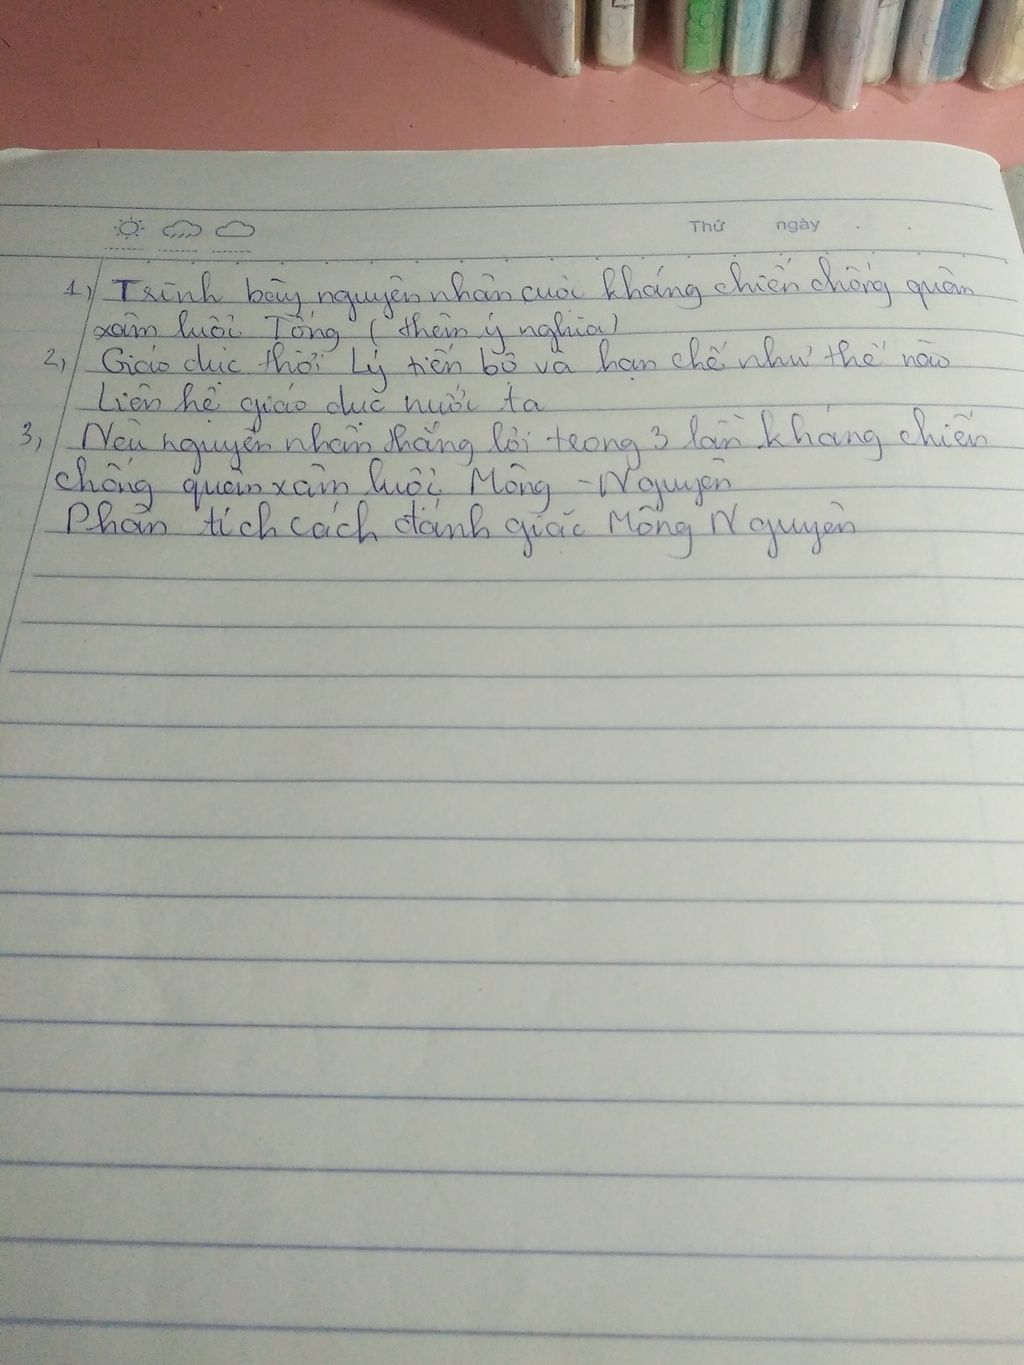 Thứ ngày
1, Trình bày nguyên nhân cuộc kháng chiến chống quân
xâm lược Tống (thêm ý nghĩa)
2, Giáo dục thời Lý tiến bộ và hạn chế như thế nào
Liên hệ giáo dục nước ta
3, Nêu nguyên nhân thắng lợi trong 3 lần kháng chiến
chống quân xâm lược Mông - Nguyên
Phân tích cách đánh giặc Mông Nguyên